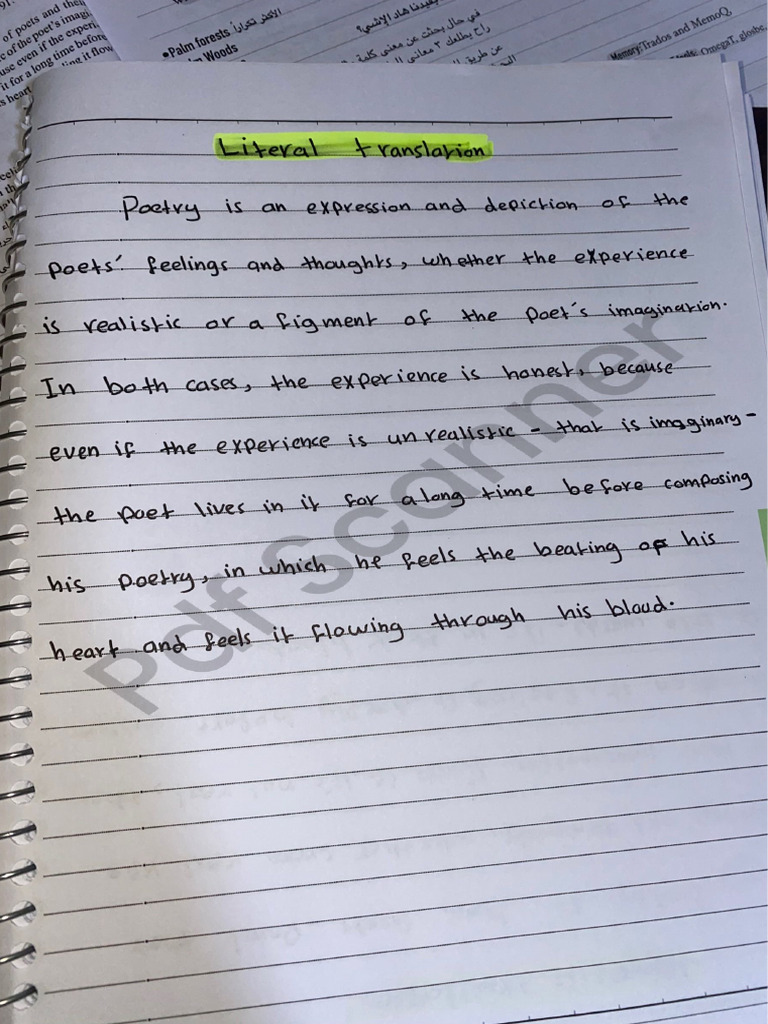 91.
of poets and thei
of the poet's imag
use even if the experi
it for a long time before
ing it flow
s heart
•Palm forests الأكثر تكراراً
Woods
بفيدنا هاد الإشي؟
في حال بحثت عن معنى كلمة
راح يطلعلك ٣ معاني
عن طريق
Memory: Trados and MemoQ.
OmegaT, glosbe,
Literal translation
Poetry is an expression and depiction of the
poets' feelings and thoughts, whether the experience
is realistic or a figment of the poet's imagination.
In both cases, the experience is honest, because
even if the experience is unrealistic - that is imaginary -
the poet lives in it for a long time before composing
his poetry, in which he feels the beating of his
heart and feels it flowing through his bloud.
Pdf Scanner